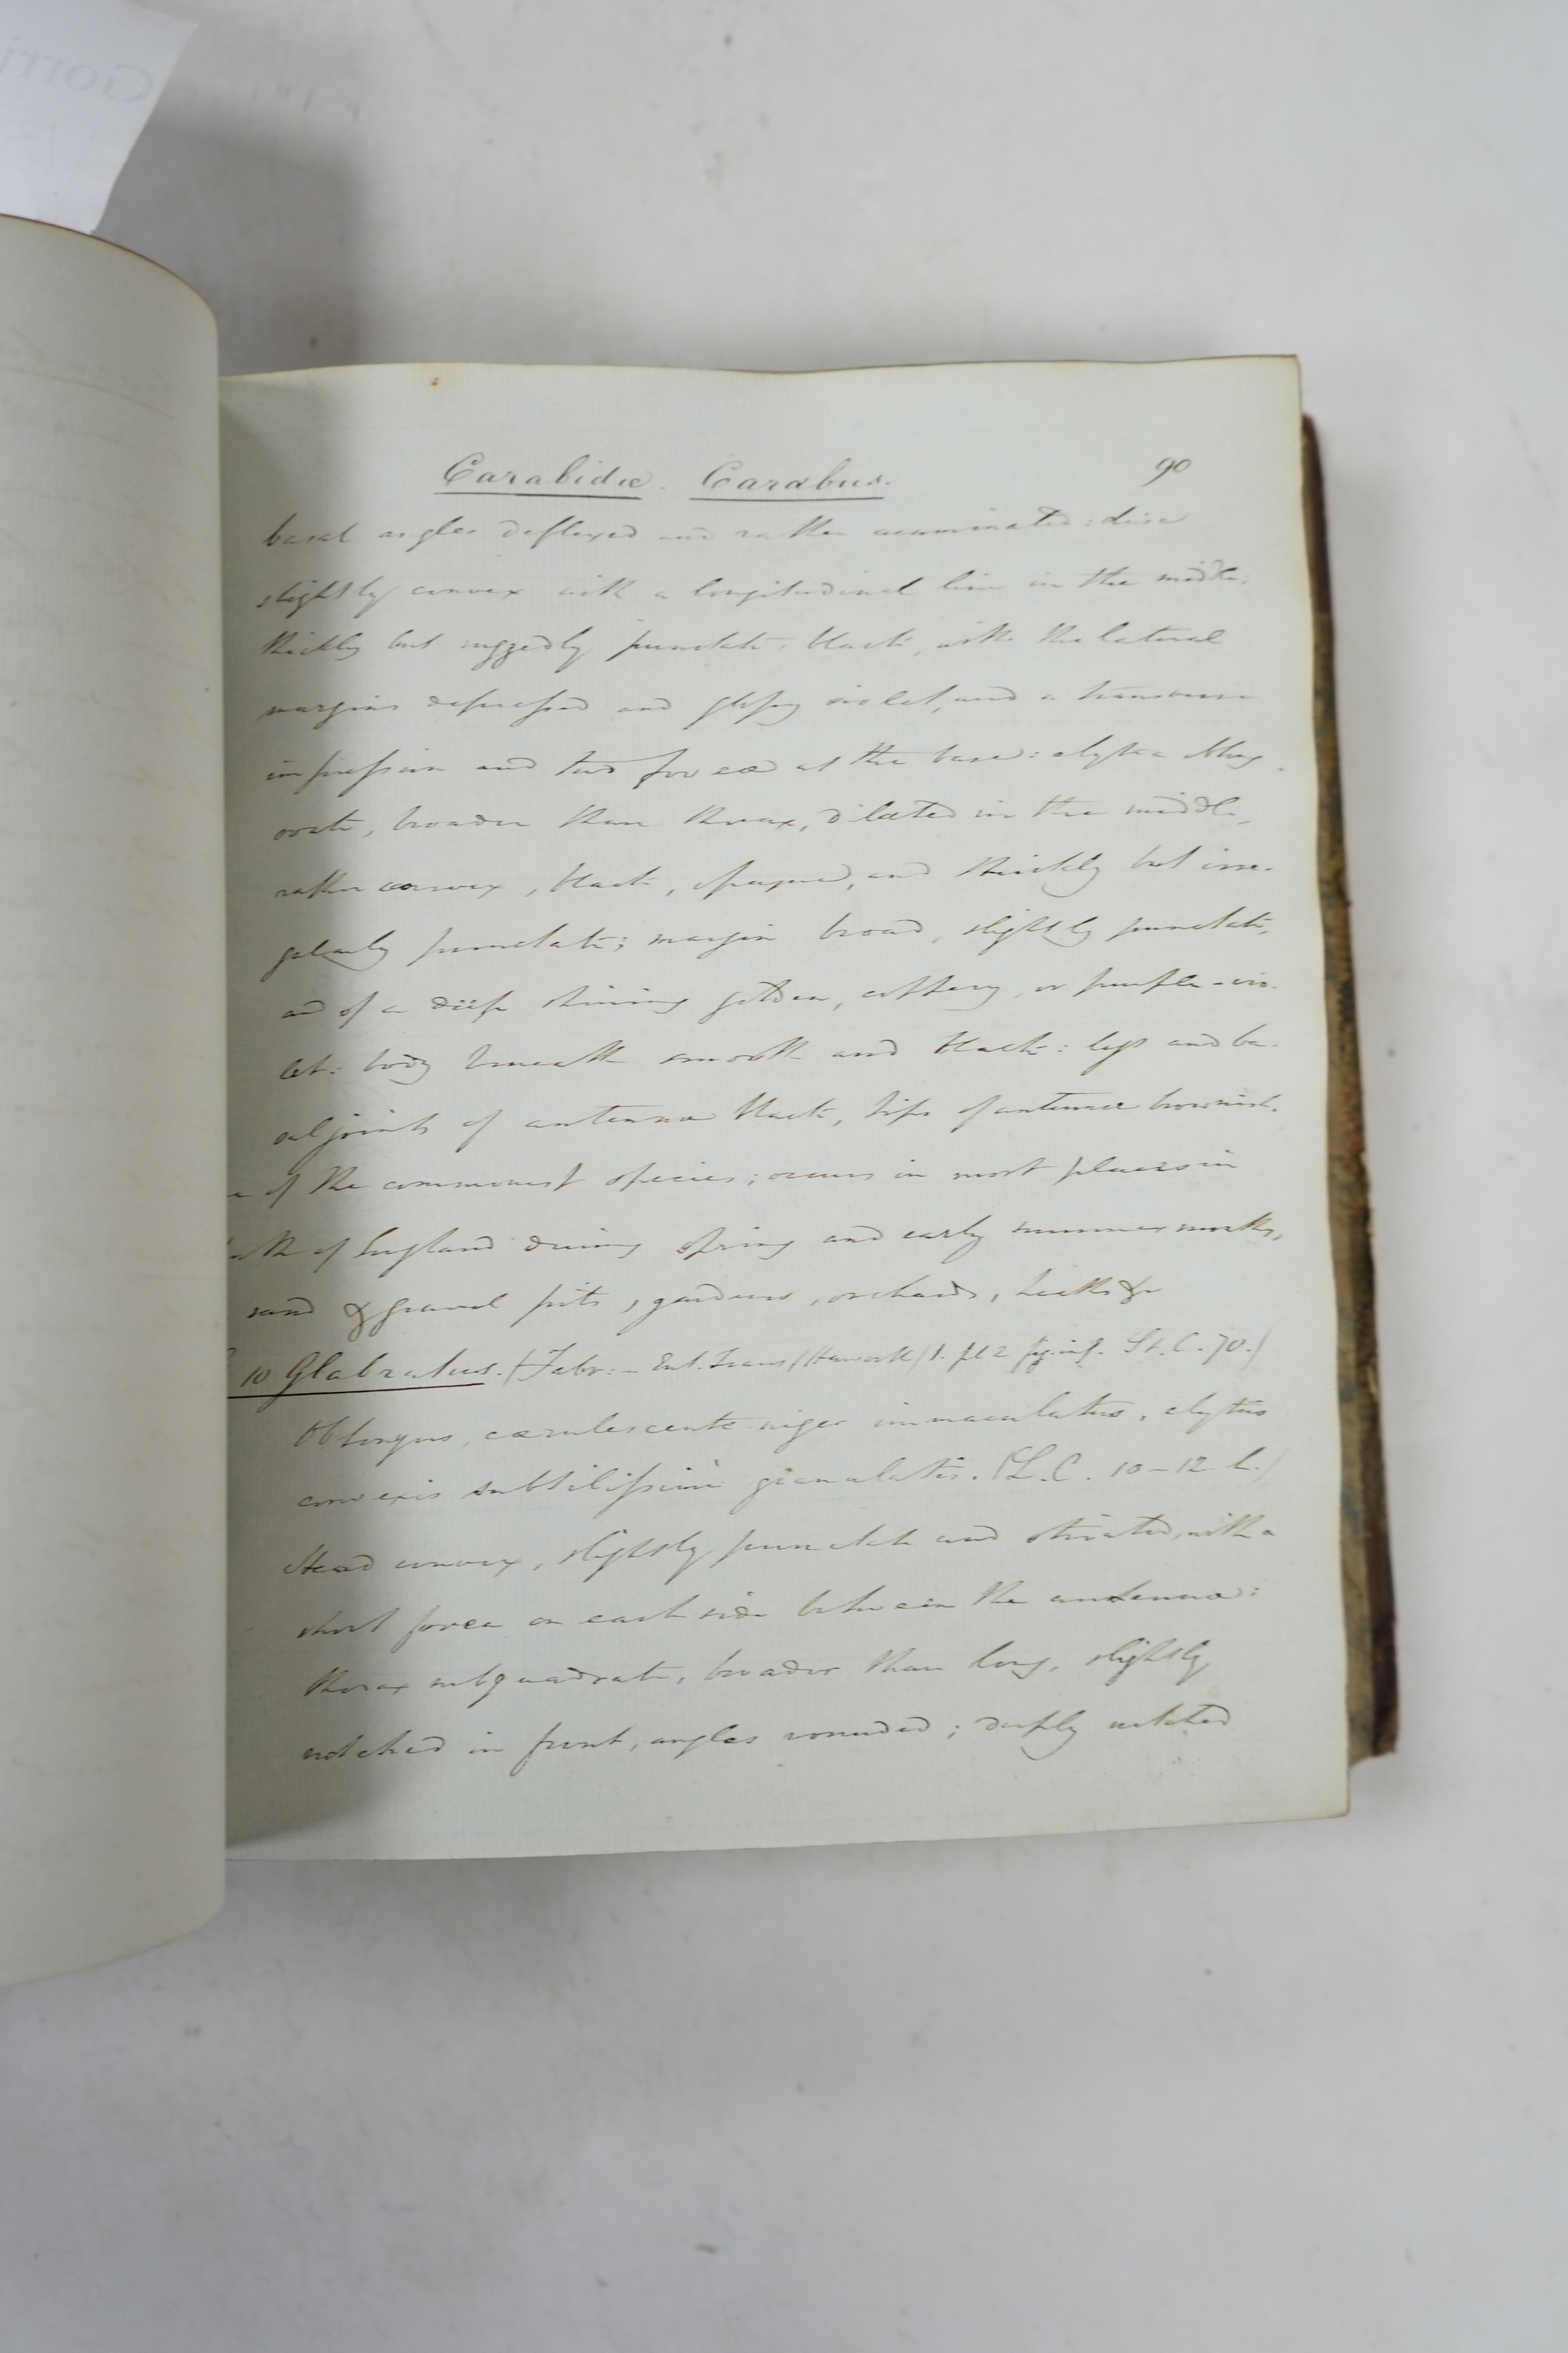 Carabidæ. Carabus. 90
basal angles deflexed and rather acuminated: disc
slightly convex with a longitudinal line in the middle;
thickly but ruggedly punctate, black, with the lateral
margins depressed and glossy violet, and a transverse
impression and two foveæ at the base: elytra oblong
ovate, broader than thorax, dilated in the middle,
rather convex, black, opaque, and thickly but irre-
gularly punctate; margin broad, slightly punctate,
and of a deep shining golden, coppery, or purple-vio-
let: body beneath smooth and black: legs and ba-
sal joints of antennæ black, tips of antennæ brownish.
of the commonest species; occurs in most places in
of England during spring and early summer months,
sand & gravel pits, gardens, orchards, heaths &c
10 Glabratus. (Fabr: - Ent. Trans (Haworth) 1. pl 2 fig. inf. St. C. 70.)
Oblongus, cærulescente-niger immaculatus, elytris
convexis subtilissimè granulatis. (L.C. 10-12 l.)
Head convex, slightly punctate and striated, with a
short fovea on each side between the antennæ:
thorax subquadrate, broader than long, slightly
notched in front, angles rounded; deeply notched